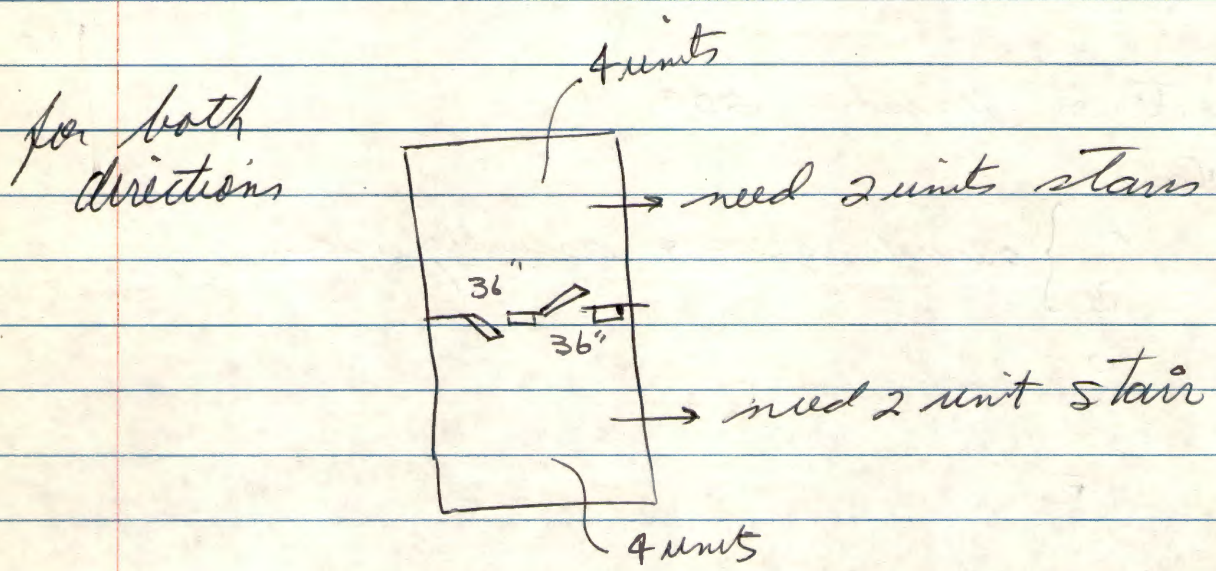 4 units
for both
directions
need 2 units stairs
36"
36"
need 2 unit stair
4 units